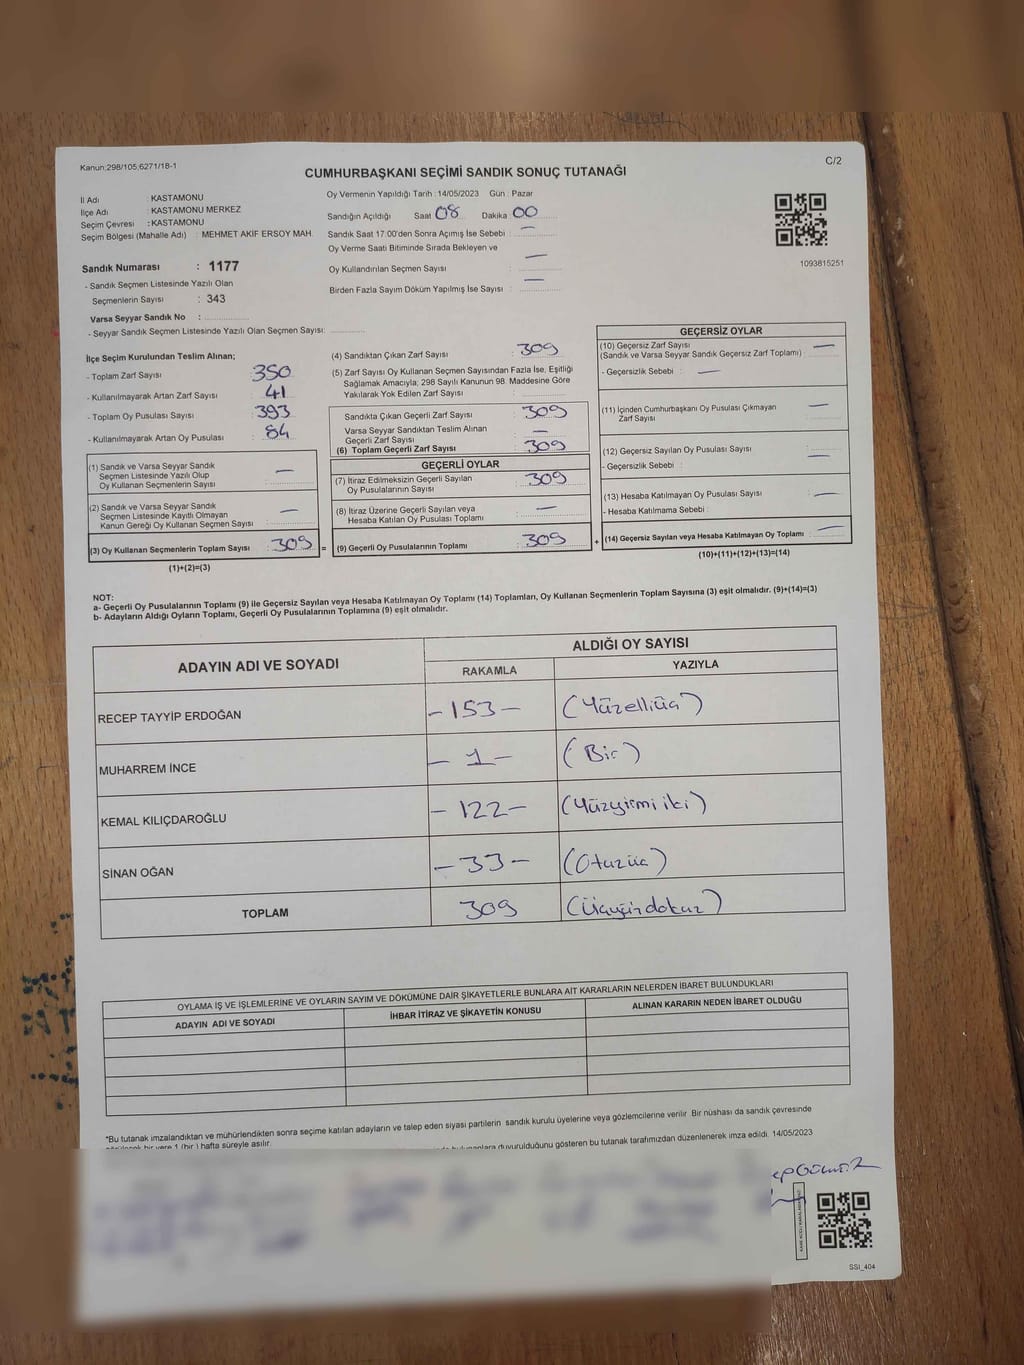 Kanun;298/105;6271/18-1
C/2
CUMHURBAŞKANI SEÇİMİ SANDIK SONUÇ TUTANAĞI
İl Adı : KASTAMONU
İlçe Adı : KASTAMONU MERKEZ
Seçim Çevresi : KASTAMONU
Seçim Bölgesi (Mahalle Adı) : MEHMET AKİF ERSOY MAH.
Sandık Numarası : 1177
- Sandık Seçmen Listesinde Yazılı Olan
Seçmenlerin Sayısı : 343
Varsa Seyyar Sandık No :
- Seyyar Sandık Seçmen Listesinde Yazılı Olan Seçmen Sayısı:
Oy Vermenin Yapıldığı Tarih : 14/05/2023 Gün : Pazar
Sandığın Açıldığı Saat 08 Dakika 00
Sandık Saat 17:00'den Sonra Açımış İse Sebebi : —
Oy Verme Saati Bitiminde Sırada Bekleyen ve
Oy Kullandırılan Seçmen Sayısı : —
Birden Fazla Sayım Döküm Yapılmış İse Sayısı : —
1093815251
İlçe Seçim Kurulundan Teslim Alınan;
- Toplam Zarf Sayısı : 350
- Kullanılmayarak Artan Zarf Sayısı : 41
- Toplam Oy Pusulası Sayısı : 393
- Kullanılmayarak Artan Oy Pusulası : 84
(1) Sandık ve Varsa Seyyar Sandık
Seçmen Listesinde Yazılı Olup
Oy Kullanan Seçmenlerin Sayısı : —
(2) Sandık ve Varsa Seyyar Sandık
Seçmen Listesinde Kayıtlı Olmayan
Kanun Gereği Oy Kullanan Seçmen Sayısı : —
(3) Oy Kullanan Seçmenlerin Toplam Sayısı : 309 =
(1)+(2)=(3)
(4) Sandıktan Çıkan Zarf Sayısı : 309
(5) Zarf Sayısı Oy Kullanan Seçmen Sayısından Fazla İse, Eşitliği
Sağlamak Amacıyla; 298 Sayılı Kanunun 98. Maddesine Göre
Yakılarak Yok Edilen Zarf Sayısı :
Sandıkta Çıkan Geçerli Zarf Sayısı : 309
Varsa Seyyar Sandıktan Teslim Alınan
Geçerli Zarf Sayısı : —
(6) Toplam Geçerli Zarf Sayısı : 309
GEÇERLİ OYLAR
(7) İtiraz Edilmeksizin Geçerli Sayılan
Oy Pusulalarının Sayısı : 309
(8) İtiraz Üzerine Geçerli Sayılan veya
Hesaba Katılan Oy Pusulası Toplamı : —
(9) Geçerli Oy Pusulalarının Toplamı : 309 +
GEÇERSİZ OYLAR
(10) Geçersiz Zarf Sayısı : —
(Sandık ve Varsa Seyyar Sandık Geçersiz Zarf Toplamı)
- Geçersizlik Sebebi : —
(11) İçinden Cumhurbaşkanı Oy Pusulası Çıkmayan
Zarf Sayısı : —
(12) Geçersiz Sayılan Oy Pusulası Sayısı : —
- Geçersizlik Sebebi :
(13) Hesaba Katılmayan Oy Pusulası Sayısı : —
- Hesaba Katılmama Sebebi :
(14) Geçersiz Sayılan veya Hesaba Katılmayan Oy Toplamı : —
(10)+(11)+(12)+(13)=(14)
NOT:
a- Geçerli Oy Pusulalarının Toplamı (9) ile Geçersiz Sayılan veya Hesaba Katılmayan Oy Toplamı (14) Toplamları, Oy Kullanan Seçmenlerin Toplam Sayısına (3) eşit olmalıdır. (9)+(14)=(3)
b- Adayların Aldığı Oyların Toplamı, Geçerli Oy Pusulalarının Toplamına (9) eşit olmalıdır.
ADAYIN ADI VE SOYADI ALDIĞI OY SAYISI
RAKAMLA YAZIYLA
RECEP TAYYİP ERDOĞAN - 153 - (Yüzelliüç)
MUHARREM İNCE - 1 - (Bir)
KEMAL KILIÇDAROĞLU - 122 - (Yüzyirmi iki)
SİNAN OĞAN - 33 - (Otuzüç)
TOPLAM 309 (Üçyüzdokuz)
OYLAMA İŞ VE İŞLEMLERİNE VE OYLARIN SAYIM VE DÖKÜMÜNE DAİR ŞİKAYETLERLE BUNLARA AİT KARARLARIN NELERDEN İBARET BULUNDUKLARI
ADAYIN ADI VE SOYADI İHBAR İTİRAZ VE ŞİKAYETİN KONUSU ALINAN KARARIN NEDEN İBARET OLDUĞU
*Bu tutanak imzalandıktan ve mühürlendikten sonra seçime katılan adayların ve talep eden siyasi partilerin sandık kurulu üyelerine veya gözlemcilerine verilir. Bir nüshası da sandık çevresinde
bir yere 1 (bir) hafta süreyle asılır.
duyurulduğunu gösteren bu tutanak tarafımızdan düzenlenerek imza edildi. 14/05/2023
SSI_404